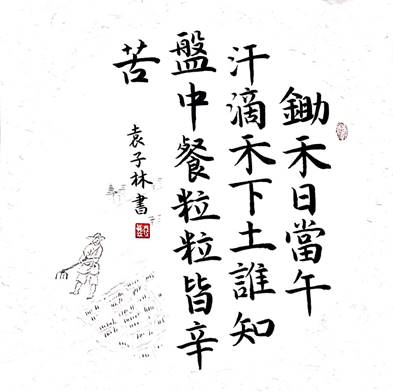 鋤禾日當午
汗滴禾下土誰知
盤中餐粒粒皆辛
苦
袁子林書